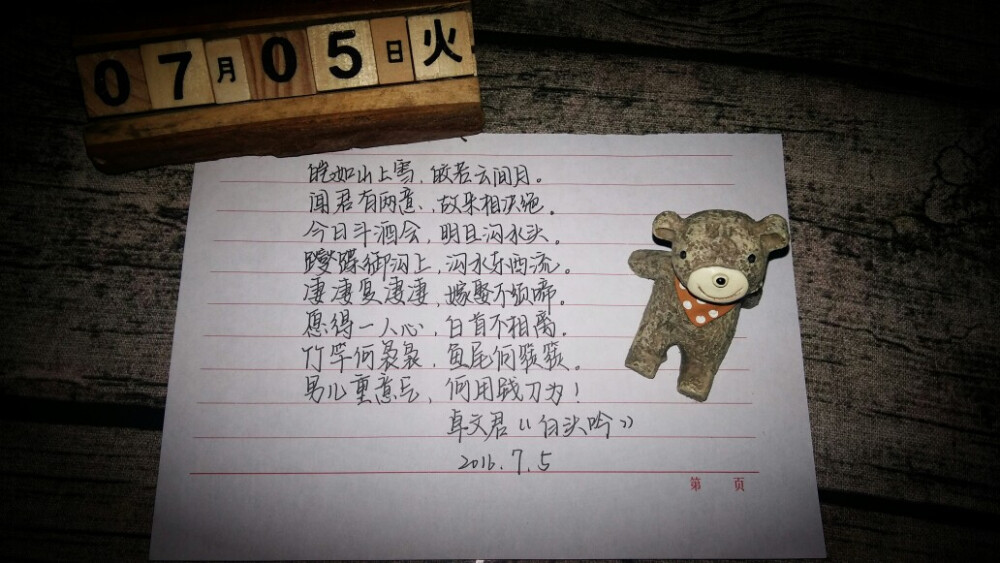 07月05日火
皑如山上雪，皎若云间月。
闻君有两意，故来相决绝。
今日斗酒会，明旦沟水头。
躞蹀御沟上，沟水东西流。
凄凄复凄凄，嫁娶不须啼。
愿得一人心，白首不相离。
竹竿何袅袅，鱼尾何簁簁。
男儿重意气，何用钱刀为！
卓文君《白头吟》
2016.7.5
第 页